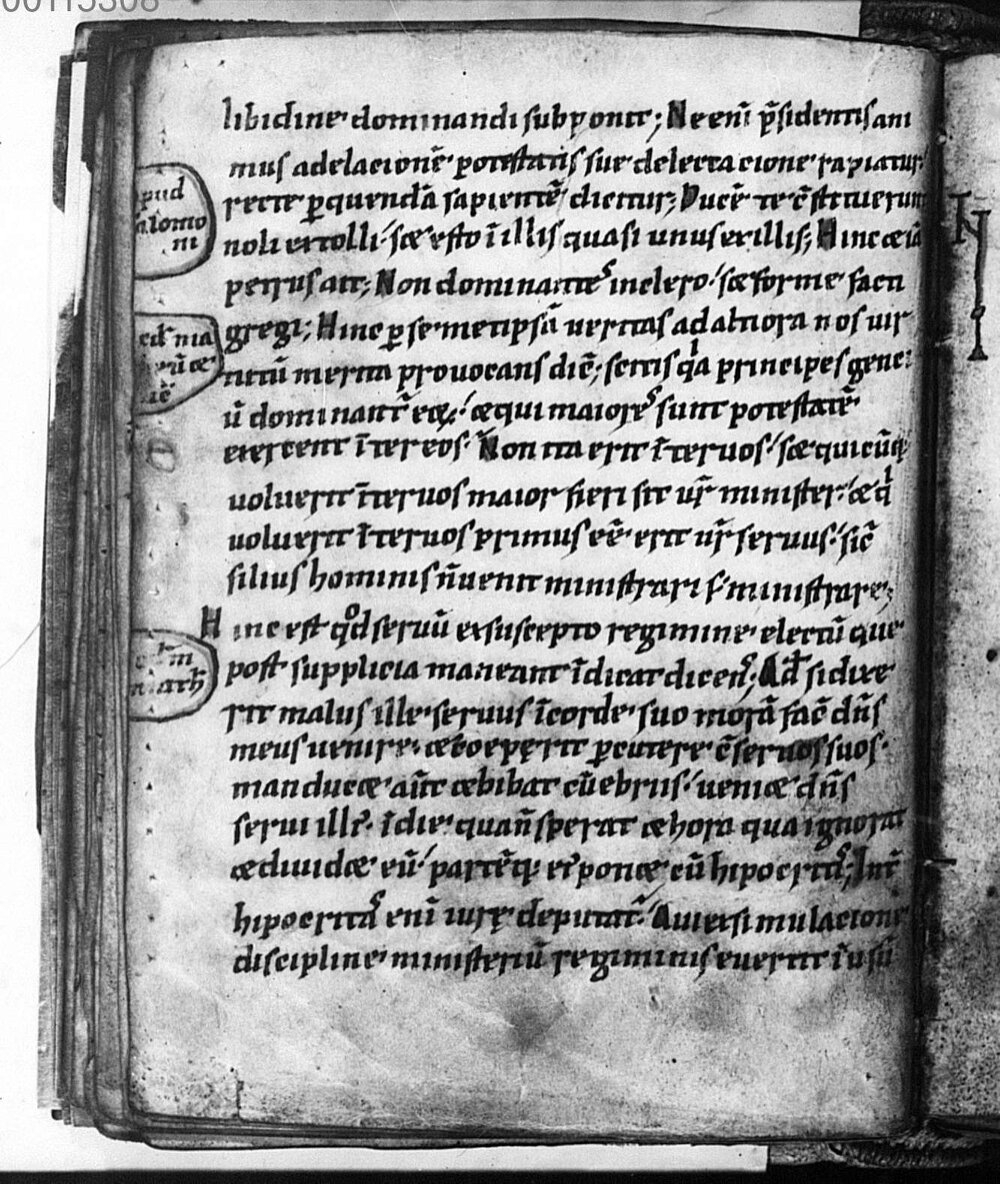 00115308
libidine dominandi subponit; Ne enī p̄sidentis ani
mus ad elacionē potestatis sue delectacione rapiatur
recte p̱ quendā sapientē dicitur; Ducē te c̄stituerunt
noli extolli s; esto ī illis quasi unus ex illis; Hinc & iā
petrus ait; Non dominantes in clero s; forme facti
gregi; Hinc p̱ semetipsā ueritas ad altiora nos uir
tutū merita prouocans diē; scitis qͥa principes gene
ū dominant̄ eoꝝ. & qui maiores sunt potestatē
exercent īter eos. Non ita erit īter uos s; quicūq;
uoluerit īter uos maior fieri sit ur̄ minister & qͥ
uoluerit īter uos primus eē erit ur̄ seruus. sic̄
filius hominis n̄ uenit ministrari s; ministrare;
Hinc est qͦd seruū ex suscepto regimine elatū que
post supplicia maneant īdicat dicens; Qd̄ si dixe
rit malus ille seruus ī corde suo morā fac̄ dn̄s
meus uenire & coeperit p̱cutere c̄seruos suos.
manduc& aūt & bibat cū ebriis ueni& dn̄s
serui illī. ī die qua n̄ sperat & hora qua ignorat
& diuid& eū partēq; ei' pon& cū hipocritis; Int̄
hipocritas enī iure deputat̄. Qui ex simulacione
discipline ministeriū regiminis euertit ī usū
pud
alomo
ni